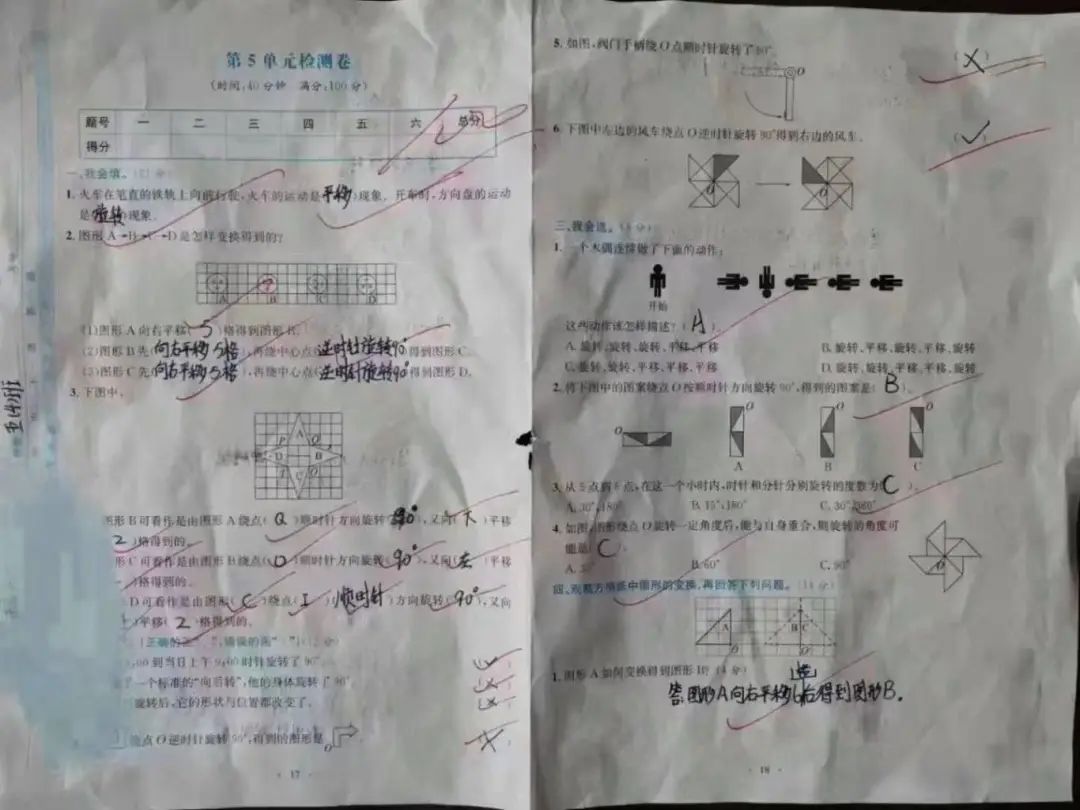 第5单元检测卷
(时间:40分钟 满分:100分)
题号 一 二 三 四 五 六 总分
得分
一、我会填。
1. 火车在笔直的铁轨上向前行驶,火车的运动是(平移)现象。开车时,方向盘的运动
是(旋转)现象。
2. 图形A→B→C→D是怎样变换得到的?
A B C D
(1)图形A向右平移(5)格得到图形B。
(2)图形B先(向右平移5格),再绕中心点(逆时针旋转90°)得到图形C。
(3)图形C先(向右平移5格),再绕中心点(逆时针旋转90°)得到图形D。
3. 下图中,
A
D B
C
图形B可看作是由图形A绕点(Q)顺时针方向旋转(90°),又向(下)平移
(2)格得到的。
形C可看作是由图形B绕点(O)顺时针方向旋转(90°),又向(左)平移
)格得到的。
D可看作是由图形(C)绕点(I)(顺时针)方向旋转(90°),又向
)平移(2)格得到的。
:00到当日上午9:00时针旋转了90°。
了一个标准的“向后转”,他的身体旋转了90°。
旋转后,它的形状与位置都改变了。
绕点O逆时针旋转90°,得到的图形是
O
· 17 ·
5. 如图,阀门手柄绕O点顺时针旋转了 (×)
O
6. 下图中左边的风车绕点O逆时针旋转90°得到右边的风车。 (✓)
O O
三、我会选。
1. 一个木偶连续做了下面的动作:
开始
这些动作该怎样描述?(A)。
A. 旋转、旋转、旋转、平移、平移 B. 旋转、平移、旋转、平移、旋转
C. 旋转、旋转、平移、平移、平移 D. 旋转、旋转、平移、平移、旋转
2. 将下图中的图案绕点O按顺时针方向旋转90°,得到的图案是(B)。
O O O O
A B C
3. 从5点到6点,在这一个小时内,时针和分针分别旋转的度数为(C)。
A. 30°,180° B. 15°,180° C. 30°,360°
4. 如图,图形绕点O旋转一定角度后,能与自身重合,则旋转的角度可
能是(C)。
B. 60° C. 90°
四、观察方格纸中图形的变换,再回答下列问题。
A B C
O O
1. 图形A如何变换得到图形B?(4分)
答:图形A向右平移6后得到图形B。
· 18 ·